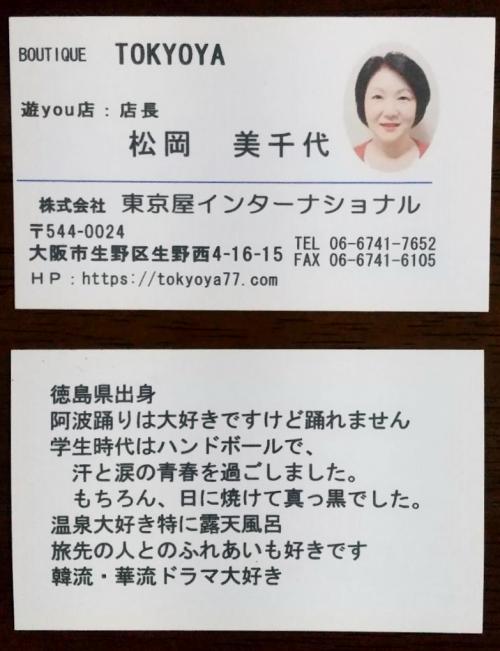 BOUTIQUE TOKYOYA
遊you店：店長
松岡 美千代
株式会社 東京屋インターナショナル
〒544-0024
大阪市生野区生野西4-16-15
TEL 06-6741-7652
FAX 06-6741-6105
ＨＰ：https://tokyoya77.com
徳島県出身
阿波踊りは大好きですけど踊れません
学生時代はハンドボールで、
汗と涙の青春を過ごしました。
もちろん、日に焼けて真っ黒でした。
温泉大好き特に露天風呂
旅先の人とのふれあいも好きです
韓流・華流ドラマ大好き